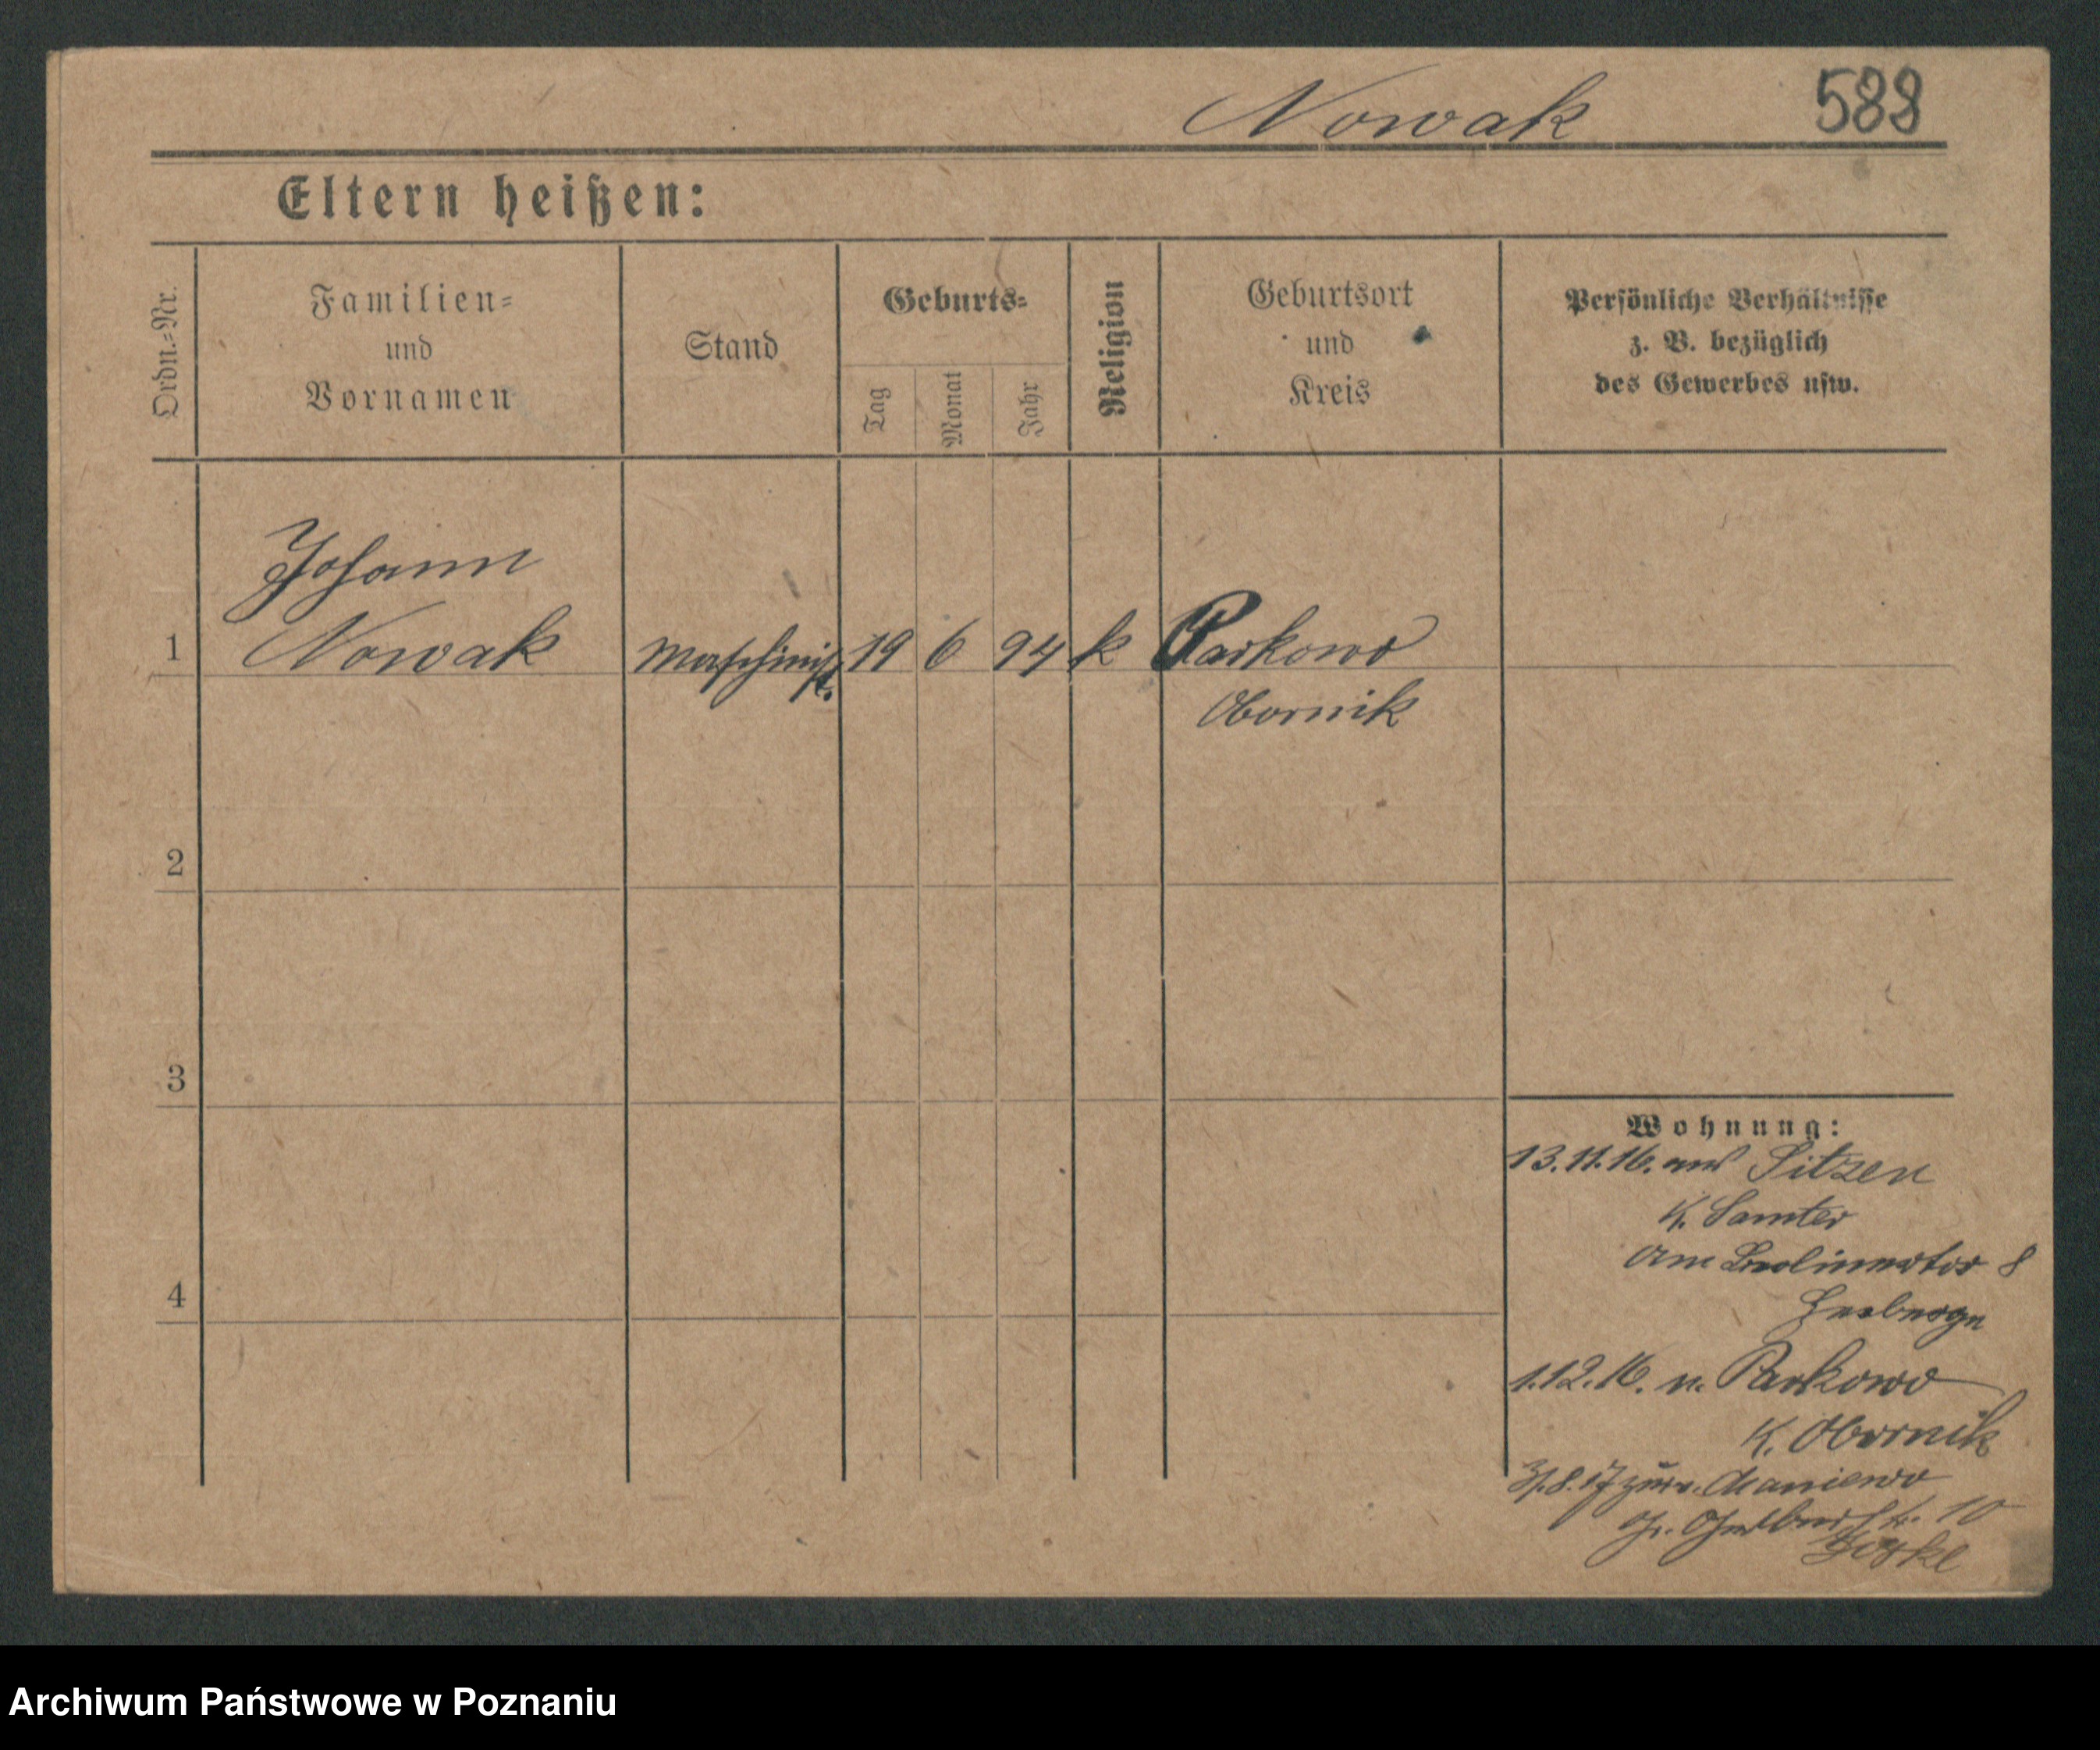 Nowak 588
Eltern heißen:
Ordn.=Nr.
Familien=
und
Vornamen
Stand
Geburts=
Tag
Monat
Jahr
Religion
Geburtsort
und
Kreis
Persönliche Verhältnisse
z. B. bezüglich
des Gewerbes usw.
Johann
1 Nowak Maschinist. 19 6 94 k Parkowo
Obornik
2
3
4
Wohnung:
13.11.16. aus
K. Samter
Am Berlinertor 8
Herberge
1.12.16. n. Parkowo
K. Obornik
31.8.17
Gr. Gerberstr. 10
Archiwum Państwowe w Poznaniu